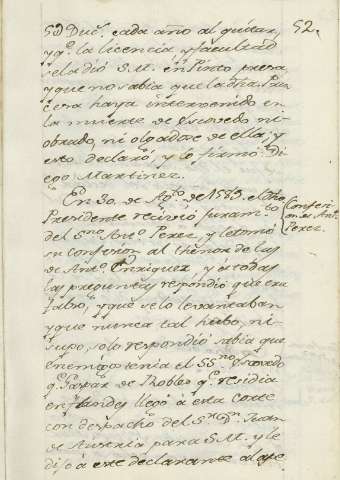 52.
50 Ducs. cada año al quitar,
y qe. la licencia y facultad
se la dió S.M. en Pinto presa
y que no sabia que la dha. Prin
cesa haya intervenido en
la muerte de Escovedo ni
obrado, ni olgadose de ella; y
esto declaró, y lo firmó Di
ego Martinez.
En 30. de Agto. de 1585. el dho
Presidente recivió juramto.
del Sno. Anto. Perez, y le tomó
su confesion al thenor de las
de Anto. Enriquez, y á todas
las preguntas respondió que era
falso, y que se lo levantaban
y que nunca tal hubo, ni
supo, solo respondió sabia que
enemigo tenia el SSno. Escovedo
q. Gaspar de Robles qe. residia
en Flandes llegó á esta corte
con despacho del Sr. Dn. Juan
de Austria para S.M. y le
dijo á este declarante al ape
Confesi
on de Anto.
Perez.